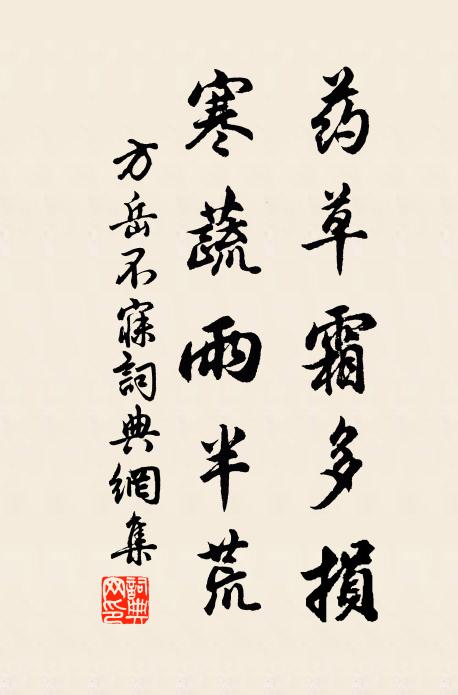 药草霜多損
寒蔬雨半荒
方岳不寐詞典網集
詞典网印